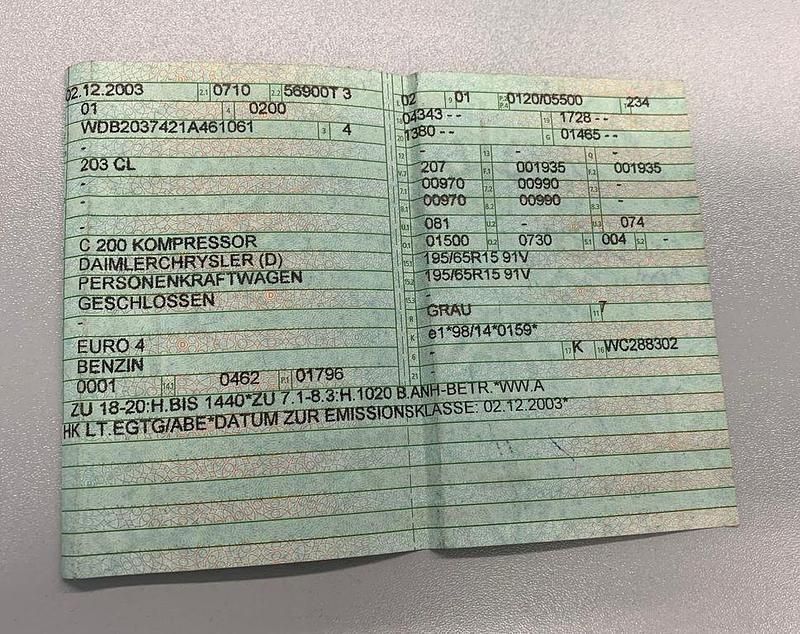 02.12.2003 2.1 0710 2.2 56900T 3
01 4 0200
WDB2037421A461061 3 4
-
203 CL
-
-
-
C 200 KOMPRESSOR
DAIMLERCHRYSLER (D)
PERSONENKRAFTWAGEN
GESCHLOSSEN
-
EURO 4
BENZIN
0001 14.1 0462 P.1 01796
02 9 01 P.2 P.4 0120/05500 .234
04343 -- 19 1728 --
20 1380 -- G 01465 --
12 - 13 - Q -
V.7 207 F.1 001935 F.2 001935
7.1 00970 7.2 00990 7.3 -
8.1 00970 8.2 00990 8.3 -
U.1 081 U.2 - U.3 074
O.1 01500 O.2 0730 S.1 004 S.2 -
15.1 195/65R15 91V
15.2 195/65R15 91V
15.3 -
R GRAU 11 7
K e1*98/14*0159*
6 - 17 K 16 WC288302
21 ZU 18-20:H.BIS 1440*ZU 7.1-8.3:H.1020 B.ANH-BETR.*WW.A
HK LT.EGTG/ABE*DATUM ZUR EMISSIONSKLASSE: 02.12.2003*